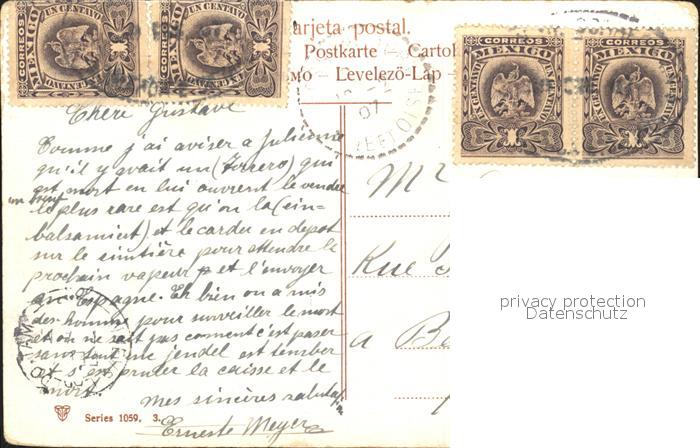 CORREOS
MEXICO
UN CENTAVO
CORREOS
MEXICO
UN CENTAVO
Tarjeta postal.
Postkarte – Cartol
Levelező-Lap –
CORREOS
MEXICO
UN CENTAVO
CORREOS
MEXICO
UN CENTAVO
07
Chere Gustave
Comme j'ai aviser a Julienne
qu'il y avait un (Torrero) qui
est mort en lui ouvrent le vendre
le plus rare est qu'on la (ein-
balsamiet) et le carder en depot
sur le cimtière pour attendre le
prochain vapeur et l'envoyer
an Espagne. Eh bien on a mis
des homme pour surveiller le mort
et on ne sait pas coment c'est paser
sans tout une jendel est tember
et s' la caisse et le
mort.
Mes sincères
Erneste Meyer
Rue
a Be
privacy protection
Datenschutz
Series 1059. 3.